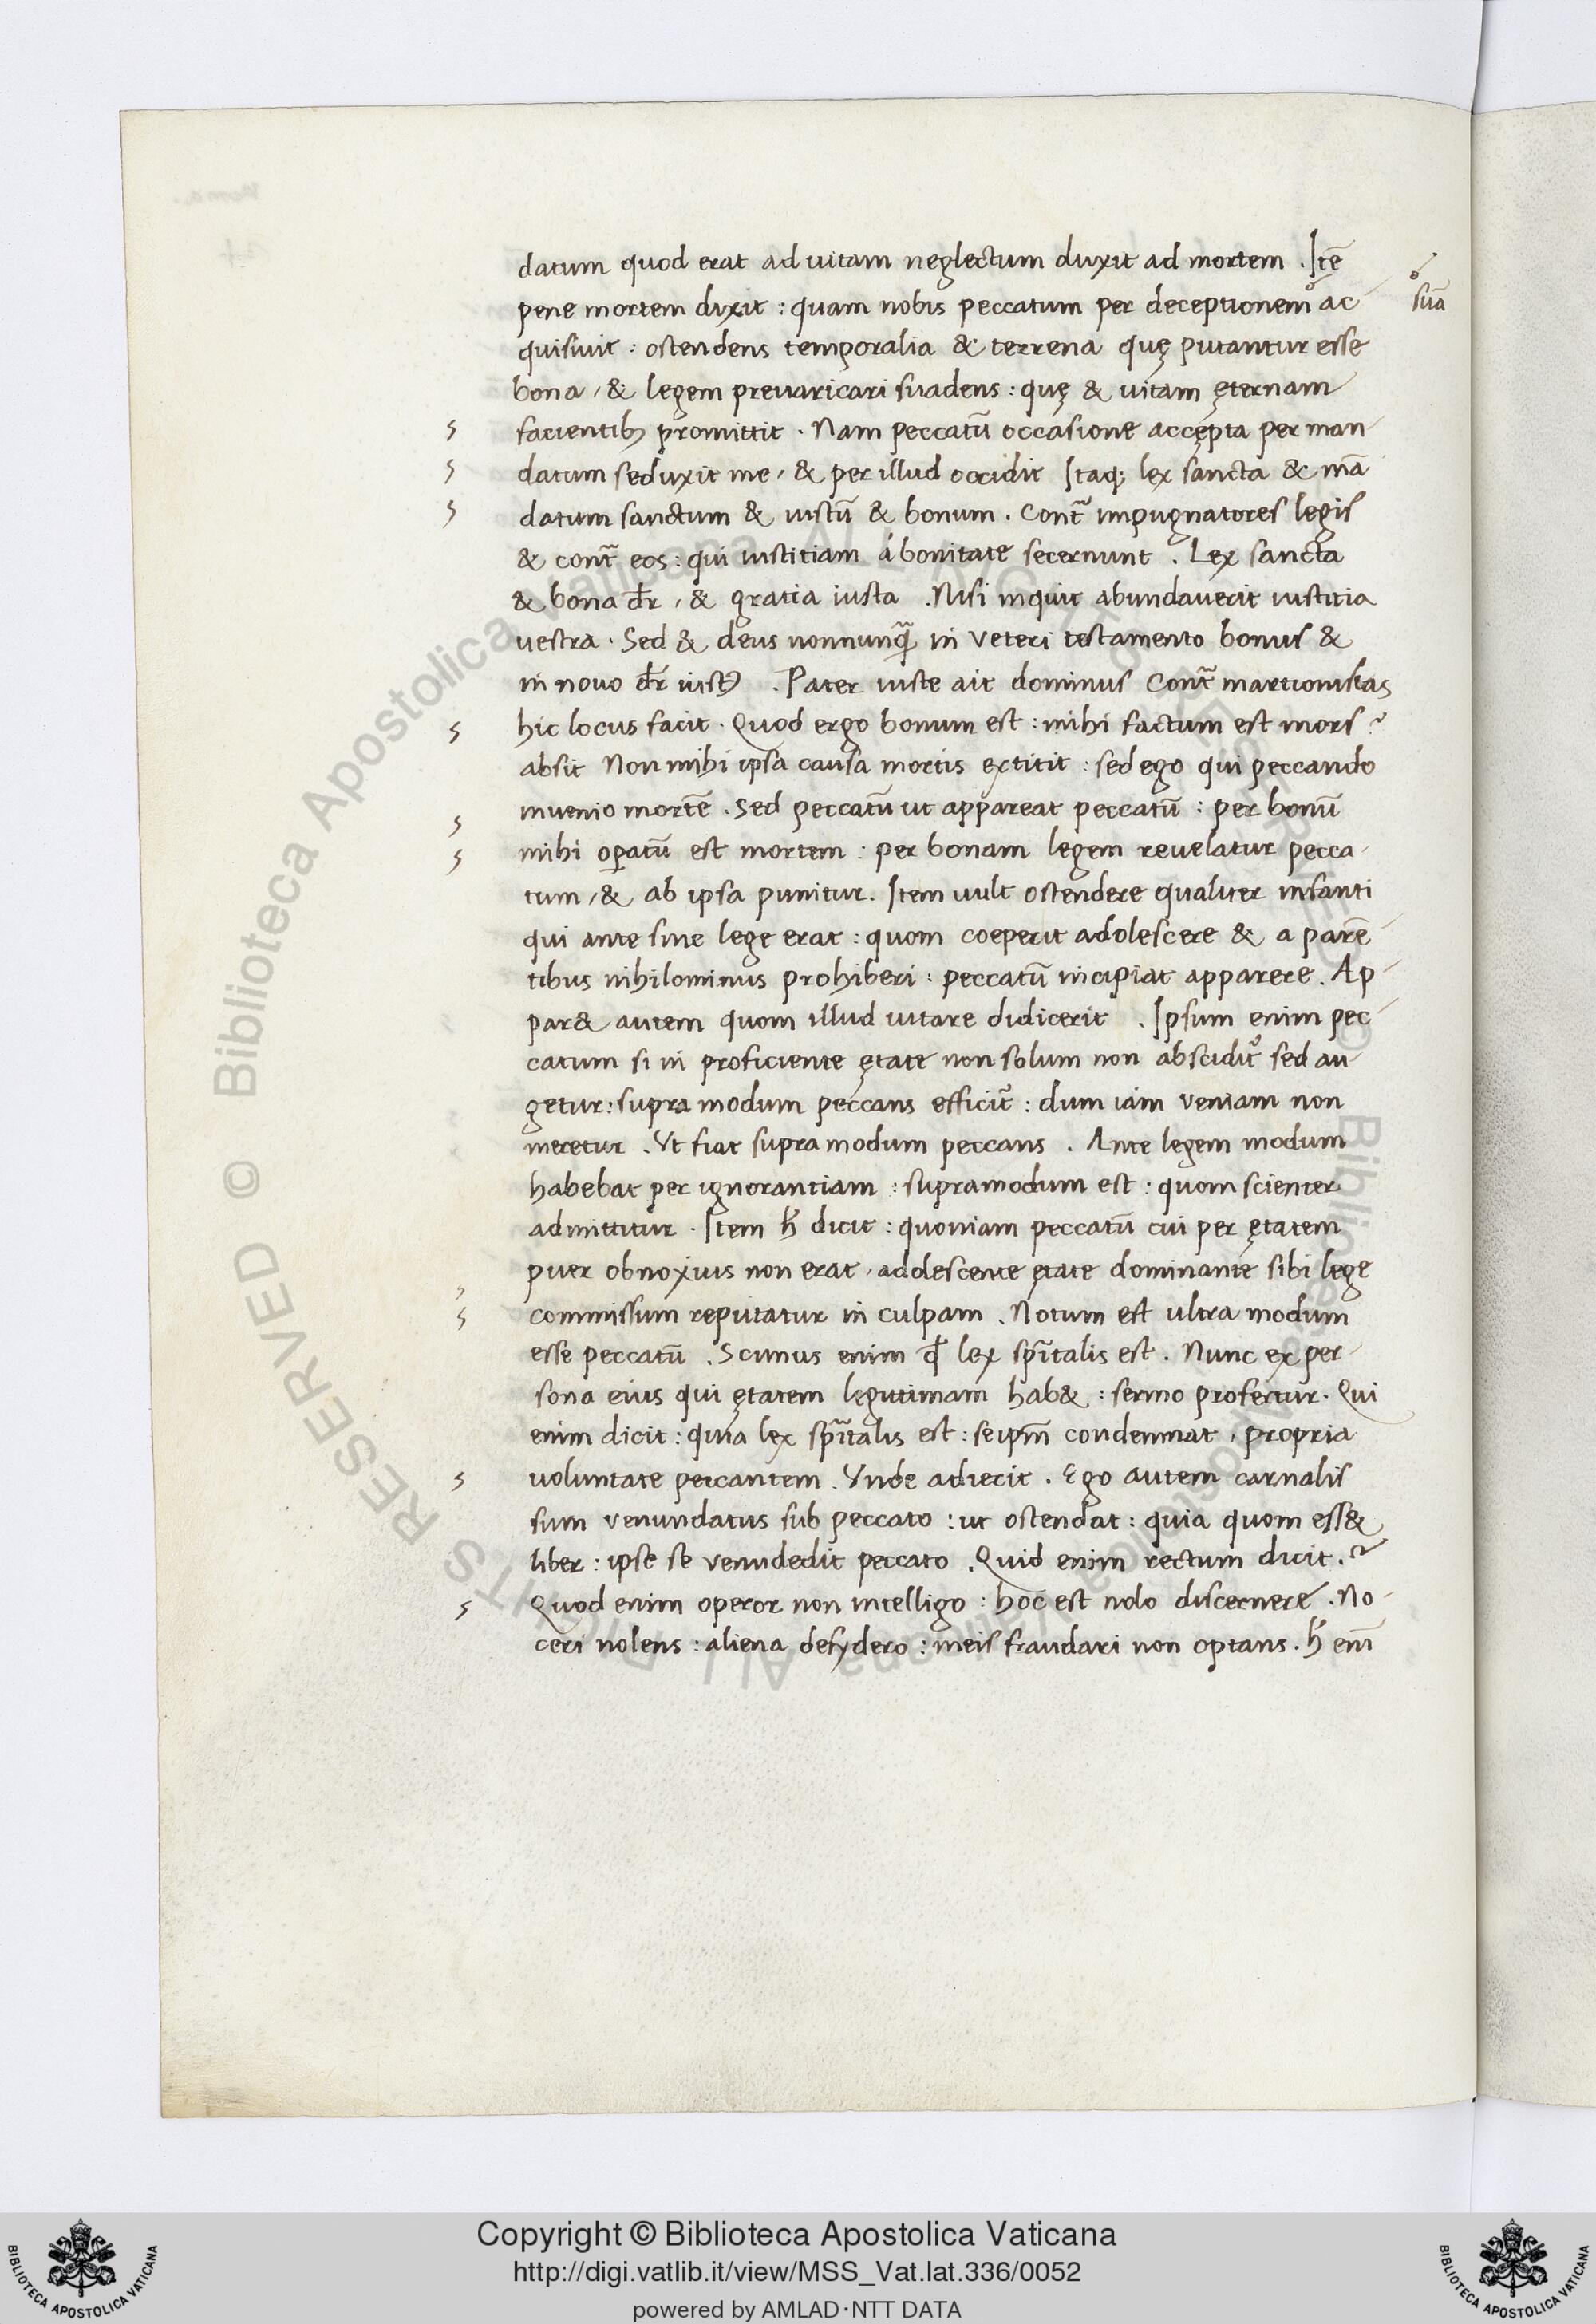 datum quod erat ad uitam neglectum duxit ad mortem . Itē
pene mortem dixit : quam nobis peccatum per deceptionem° ac-
° suā
quisiuit : ostendens temporalia & terrena quę putantur esse
bona , & legem preuaricari suadens : quę & uitam ęternam
facientibꝫ promittit . Nam peccatū occasione accępta per man-
datum seduxit me , & per illud occidit Itaqꝫ lex sancta & mā
datum sanctum & iustū & bonum . Contª impugnatores legis
& contª eos : qui iustitiam á bonitate secernunt . Lex sancta
& bona dr̄ , & gratia iusta . Nisi inquit abundauerit iustitia
uestra . Sed & deus nonnunqª in veteri testamento bonus &
in nouo dr̄ iustꝰ . Pater iuste ait dominus Contª martionistas
hic locus facit . Quod ergo bonum est : mihi factum est mors ?
absit Non mihi ipsa causa mortis extitit : sed ego qui peccando
inuenio mortē . Sed peccatū ut appareat peccatū : per bonū
mihi oꝑatū est mortem : per bonam legem reuelatur pecca-
tum , & ab ipsa punitur . Item uult ostendere qualiter infanti
qui ante sine lege erat : quom coeperit adolescere & a parē-
tibus nihilominus prohiberi : peccatū incipiat apparere . Ap-
par& autem quom illud uitare didicerit . Ipsum enim pec-
catum si in proficiente ętate non solum non abscidit᷑ sed au-
getur : supra modum peccans efficit᷑ : dum iam veniam non
meretur . Vt fiat supra modum peccans . Ante legem modum
habebat per ignorantiam : supramodum est : quom scienter
admittitur . Item h̄ dicit : quoniam peccatū cui per ętatem
puer obnoxius non erat , adolescente ętate dominante sibi lege
commissum reputatur in culpam . Notum est ultra modum
esse peccatū . Scimus enim qđ lex spītalis est . Nunc ex per-
sona eius qui ętatem legitimam hab& : sermo profertur . Qui
enim dicit : quia lex spītalis est : seipm̄ condemnat , propria
uoluntate peccantem . Vnde adiecit . Ego autem carnalis
sum venundatus sub peccato : ut ostendat : quia quom ess&
liber : ipse se venudedit peccato . Quid enim rectum dicit . ?
Quod enim operor non intelligo : hoc est nolo discernere . No-
ceri nolens : aliena desydero : meis fraudari non optans . h̄ enī
Copyright © Biblioteca Apostolica Vaticana
http://digi.vatlib.it/view/MSS_Vat.lat.336/0052
powered by AMLAD·NTT DATA